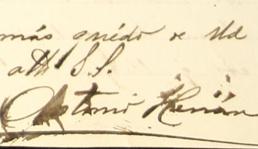 más quédo de Ud
att S.S.
Antonio Hernán